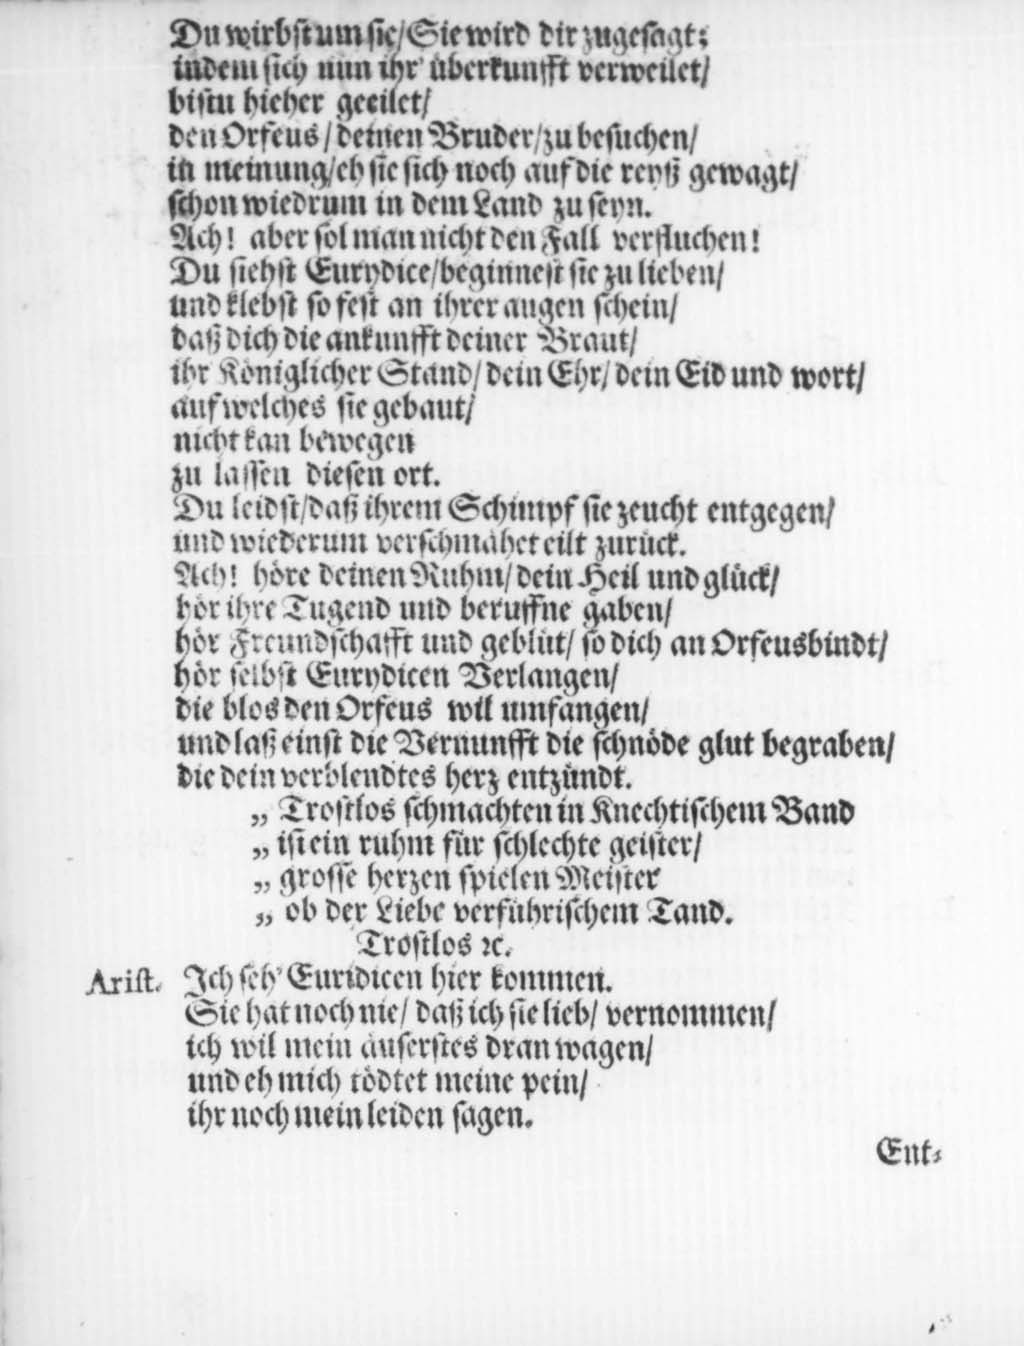 Du wirbst um sie/ Sie wird dir zugesagt;
indem sich nun ihr' überkunfft verweilet/
bistu hieher geeilet/
den Orfeus/ deinen Bruder/ zu besuchen/
in meinung/ eh sie sich noch auf die reyß gewagt/
schon wiedrum in dem Land zu seyn.
Ach! aber sol man nicht den Fall verfluchen!
Du siehst Eurydice/ beginnest sie zu lieben/
und klebst so fest an ihrer augen schein/
daß dich die ankunfft deiner Braut/
ihr Königlicher Stand/ dein Ehr/ dein Eid und wort/
auf welches sie gebaut/
nicht kan bewegen
zu lassen diesen ort.
Du leidst/ daß ihrem Schimpf sie zeucht entgegen/
und wiederum verschmähet eilt zurück.
Ach! höre deinen Ruhm/ dein Heil und glück/
hör ihre Tugend und beruffne gaben/
hör Freundschafft und geblüt/ so dich an Orfeus bindt/
hör selbst Eurydicen Verlangen/
die blos den Orfeus wil umfangen/
und laß einst die Vernunfft die schnöde glut begraben/
die dein verblendtes herz entzündt.
„ Trostlos schmachten in Knechtischem Band
„ ist ein ruhm für schlechte geister/
„ grosse herzen spielen Meister
„ ob der Liebe verführischem Tand.
Trostlos ꝛc.
Arist. Ich seh' Euridicen hier kommen.
Sie hat noch nie/ daß ich sie lieb/ vernommen/
ich wil mein äuserstes dran wagen/
und eh mich tödtet meine pein/
ihr noch mein leiden sagen.
Ent-